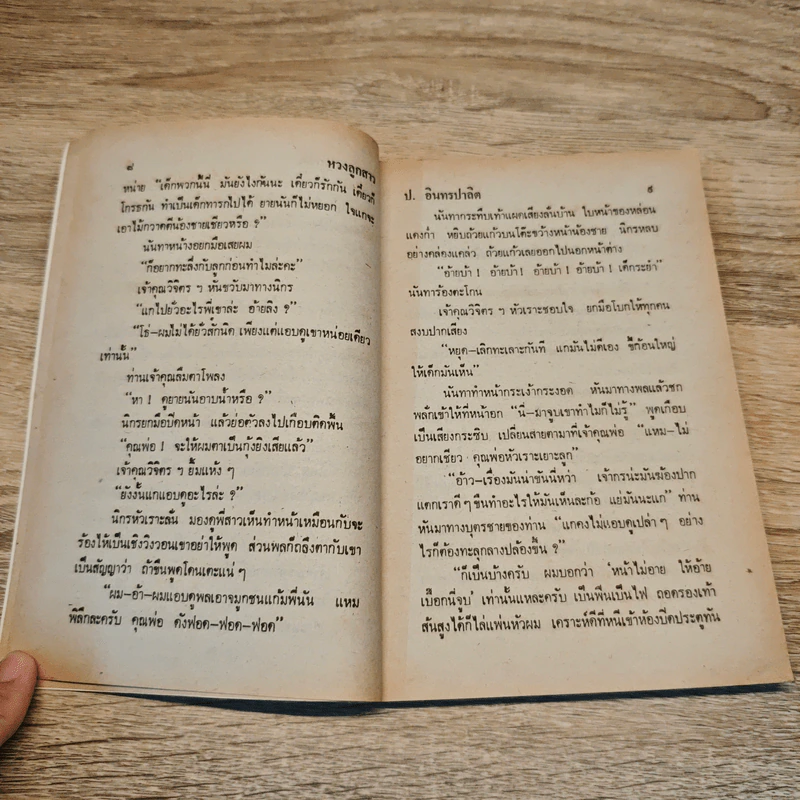 ๘ หวงลูกสาว
หน่าย “เด็กพวกนี้นี่ มันยังไงกันนะ เดี๋ยวก็รักกัน เดี๋ยวก็
โกรธกัน ทำเป็นเด็กทารกไปได้ ยายนันก็ไม่หยอก ใจแกจะ
เอาไม้กวาดตีน้องชายเชียวหรือ ?”
นันทาหน้างอยกมือเสยผม
“ก็อยากทะลึ่งกับลูกก่อนทำไมล่ะคะ”
เจ้าคุณวิจิตร ฯ หันขวับมาทางนิกร
“แกไปยั่วอะไรพี่เขาล่ะ อ้ายลิง ?”
“โธ่-ผมไม่ได้ยั่วสักนิด เพียงแต่แอบดูเขาหน่อยเดียว
เท่านั้น”
ท่านเจ้าคุณลืมตาโพลง
“หา ! ดูยายนันอาบน้ำหรือ ?”
นิกรยกมือปิดหน้า แล้วย่อตัวลงไปเกือบติดพื้น
“คุณพ่อ ! จะให้ผมตาเป็นกุ้งยิงเสียแล้ว”
เจ้าคุณวิจิตร ฯ ยิ้มแห้ง ๆ
“ยังงั้นแกแอบดูอะไรล่ะ ?”
นิกรหัวเราะลั่น มองดูพี่สาวเห็นทำหน้าเหมือนกับจะ
ร้องไห้เป็นเชิงวิงวอนเขาอย่าให้พูด ส่วนพลก็ถลึงตากับเขา
เป็นสัญญาว่า ถ้าขืนพูดโดนเตะแน่ ๆ
“ผม-อ้า-ผมแอบดูพลเอาจมูกชนแก้มพี่นัน แหม
พิลึกละครับ คุณพ่อ ดังฟอด-ฟอด-ฟอด”
ป. อินทรปาลิต ๙
นันทากระทืบเท้าแผดเสียงลั่นบ้าน ใบหน้าของหล่อน
แดงก่ำ หยิบถ้วยแก้วบนโต๊ะขว้างหน้าน้องชาย นิกรหลบ
อย่างคล่องแคล่ว ถ้วยแก้วเลยออกไปนอกหน้าต่าง
“อ้ายบ้า ! อ้ายบ้า ! อ้ายบ้า ! อ้ายบ้า ! เด็กระยำ”
นันทาร้องตะโกน
เจ้าคุณวิจิตร ฯ หัวเราะชอบใจ ยกมือโบกให้ทุกคน
สงบปากเสียง
“หยุด-เลิกทะเลาะกันที แกมันไม่ดีเอง ขี้ก้อนใหญ่
ให้เด็กมันเห็น”
นันทาทำหน้ากระเง้ากระงอด หันมาทางพลแล้วชก
พลั่กเข้าให้ที่หน้าอก “นี่-มาจูบเขาทำไมก็ไม่รู้” พูดเกือบ
เป็นเสียงกระซิบ เปลี่ยนสายตามาที่เจ้าคุณพ่อ “แหม-ไม่
อยากเชียว คุณพ่อหัวเราะเยาะลูก”
“อ้าว-เรื่องมันน่าขันนี่หว่า เจ้ากรน่ะมันฆ้องปาก
แตกเราดี ๆ ขืนทำอะไรให้มันเห็นละก้อ แย่มันนะแก” ท่าน
หันมาทางบุตรชายของท่าน “แกคงไม่แอบดูเปล่า ๆ อย่าง
ไรก็ต้องทะลุกลางปล้องขึ้น ?”
“ก็เป็นบ้างครับ ผมบอกว่า ‘หน้าไม่อาย ให้อ้าย
เบื๊อกนี่จูบ’ เท่านั้นแหละครับ เป็นฟืนเป็นไฟ ถอดรองเท้า
ส้นสูงได้ก็ไล่แพ่นหัวผม เคราะห์ดีที่หนีเข้าห้องปิดประตูทัน